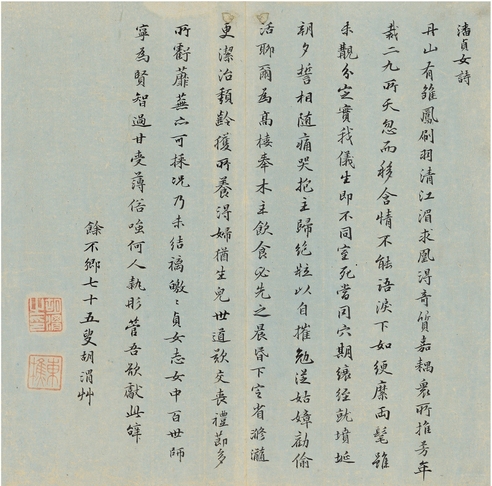 潘貞女詩
丹山有雏鳳刷羽清江湄求凰得奇質嘉耦衆所推芳年
裁二九所夭忽而移含情不能語淚下如綆縻兩髦雖
未觀分定實我儀生即不同室死當同穴期縗絰就墳埏
朝夕誓相隨痛哭抱主歸絶粒以自摧勉從姑嫜勸偷
活聊爾為高樓奉木主飲食必先之晨昏下堂省滫瀡
更潔治頹齡獲所養得婦猶生兒世道欲交喪禮節多
所虧蘼蕪亦可採况乃未結褵皦〻貞女志女中百世師
寧為賢智過甘受薄俗嗤何人執彤管吾欲獻此辭
餘不鄉七十五叟胡渭艸